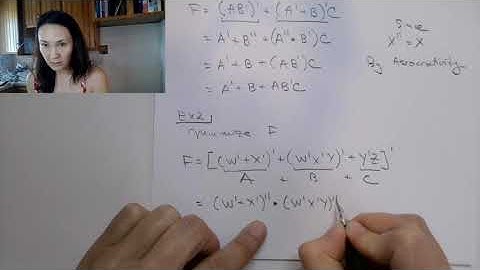 F = (AB')' + (A' + B)C
= A' + B'' + (A'' • B')C
= A' + B + (AB')C
= A' + B + AB'C
Since
X'' = X
By Associativity
Ex2
minimize F
F = [(W' + X')' + (W'X'Y)' + Y'Z]'
A + B + C
= (W' + X')'' • (W'X'Y)'